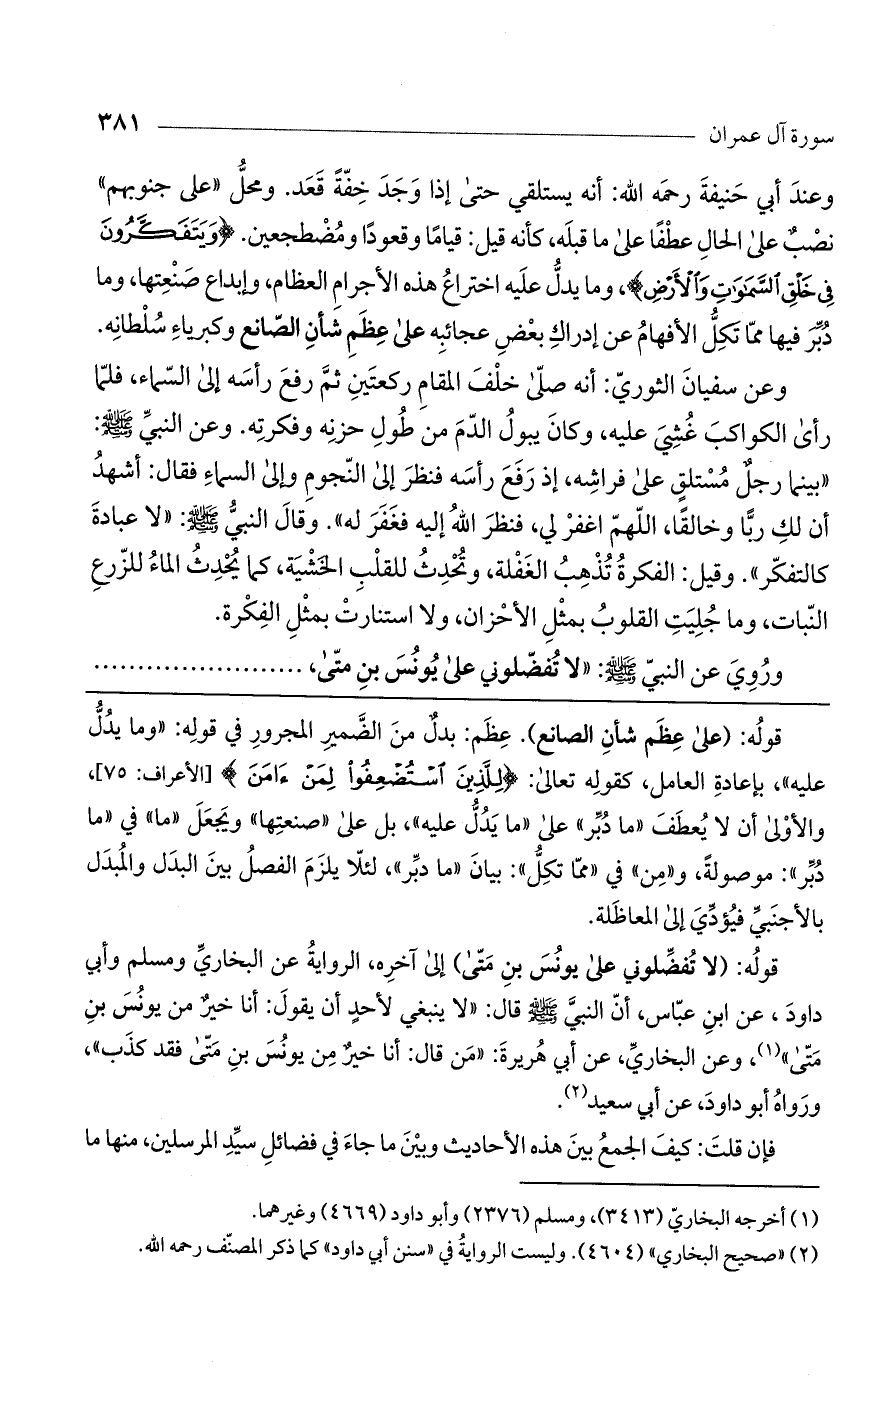 سورة آل عمران ٣٨١
وعندَ أبي حَنيفةَ رحمَه الله: أنه يستلقي حتىٰ إذا وَجَدَ خِفّةً قَعَد. ومحلُّ «على جنوبهم»
نصْبٌ علىٰ الحالِ عطْفًا علىٰ ما قبلَه، كأنه قيل: قيامًا وقعودًا ومُضْطجعين. ﴿وَيَتَفَكَّرُونَ
فِي خَلْقِ ٱلسَّمَٰوَٰتِ وَٱلْأَرْضِ﴾، وما يدلُّ علَيه اختراعُ هذه الأجرامِ العظام، وإبداع صَنْعِتها، وما
دُبِّرَ فيها ممّا تَكِلُّ الأفهامُ عن إدراكِ بعْضِ عجائبِه علىٰ عِظَمِ شأنِ الصّانع وكبرياءِ سُلْطانِه.
وعن سفيانَ الثوريّ: أنه صلّىٰ خلْفَ المقامِ ركعتَينِ ثمَّ رفعَ رأسَه إلىٰ السّماء، فلمّا
رأىٰ الكواكبَ غُشِيَ عليه، وكانَ يبولُ الدّمَ من طُولِ حزنِه وفكرتِه. وعن النبيِّ ﷺ:
«بينما رجلٌ مُسْتلقٍ علىٰ فراشِه، إذ رَفَعَ رأسَه فنظرَ إلىٰ النّجومِ وإلىٰ السماءِ فقال: أشهدُ
أن لكِ ربًّا وخالقًا، اللّهمّ اغفرْ لي، فنظرَ اللهُ إليه فغَفَرَ له». وقالَ النبيُّ ﷺ: «لا عبادةَ
كالتفكّر». وقيل: الفكرةُ تُذْهِبُ الغَفْلة، وتُحْدِثُ للقلْبِ الخَشْيَة، كما يُحْدِثُ الماءُ للزّرعِ
النّبات، وما جُلِيَتِ القلوبُ بمثْلِ الأحْزان، ولا استنارتْ بمثْلِ الفِكْرة.
ورُوِيَ عن النبيّ ﷺ: «لا تُفضّلوني علىٰ يُونُسَ بنِ متّىٰ، ........................
قولُه: (علىٰ عِظَم شأنِ الصانع). عِظَم: بدلٌ منَ الضَّميرِ المجرورِ في قولِه: «وما يدُلُّ
عليه»، بإعادةِ العامل، كقولِه تعالىٰ: ﴿لِلَّذِينَ ٱسْتُضْعِفُوا۟ لِمَنْ ءَامَنَ﴾ [الأعراف: ٧٥]،
والأَوْلىٰ أن لا يُعطَفَ «ما دُبِّر» علىٰ «ما يَدُلُّ عليه»، بل علىٰ «صنعتِها» ويَجعَلَ «ما» في «ما
دُبِّر»: موصولةً، و«مِن» في «ممّا تكِلُّ»: بيانَ «ما دبِّر»، لئلّا يلزَمَ الفصلُ بينَ البدَل والمُبدَل
بالأجنَبيِّ فيُؤدِّيَ إلىٰ المعاظَلة.
قولُه: (لا تُفضِّلوني علىٰ يونُسَ بنِ مَتّىٰ) إلىٰ آخرِه، الروايةُ عن البخاريِّ ومسلم وأبي
داودَ ، عن ابنِ عبّاس، أنّ النبيَّ ﷺ قال: «لا ينبغي لأحدٍ أن يقولَ: أنا خيرٌ من يونُسَ بنِ
مَتّىٰ»(١)، وعن البخاريِّ، عن أبي هُريرةَ: «مَن قال: أنا خيرٌ مِن يونُسَ بنِ مَتّىٰ فقد كذَب»،
ورَواهُ أبو داودَ، عن أبي سعيد(٢).
فإن قلتَ: كيفَ الجمعُ بينَ هذه الأحاديث وبيْنَ ما جاءَ في فضائلِ سيِّدِ المرسلين، منها ما
(١) أخرجه البخاريّ (٣٤١٣)، ومسلم (٢٣٧٦) وأبو داود (٤٦٦٩) وغيرهما.
(٢) «صحيح البخاري» (٤٦٠٤). وليست الروايةُ في «سنن أبي داود» كما ذكر المصنّف رحمه الله.